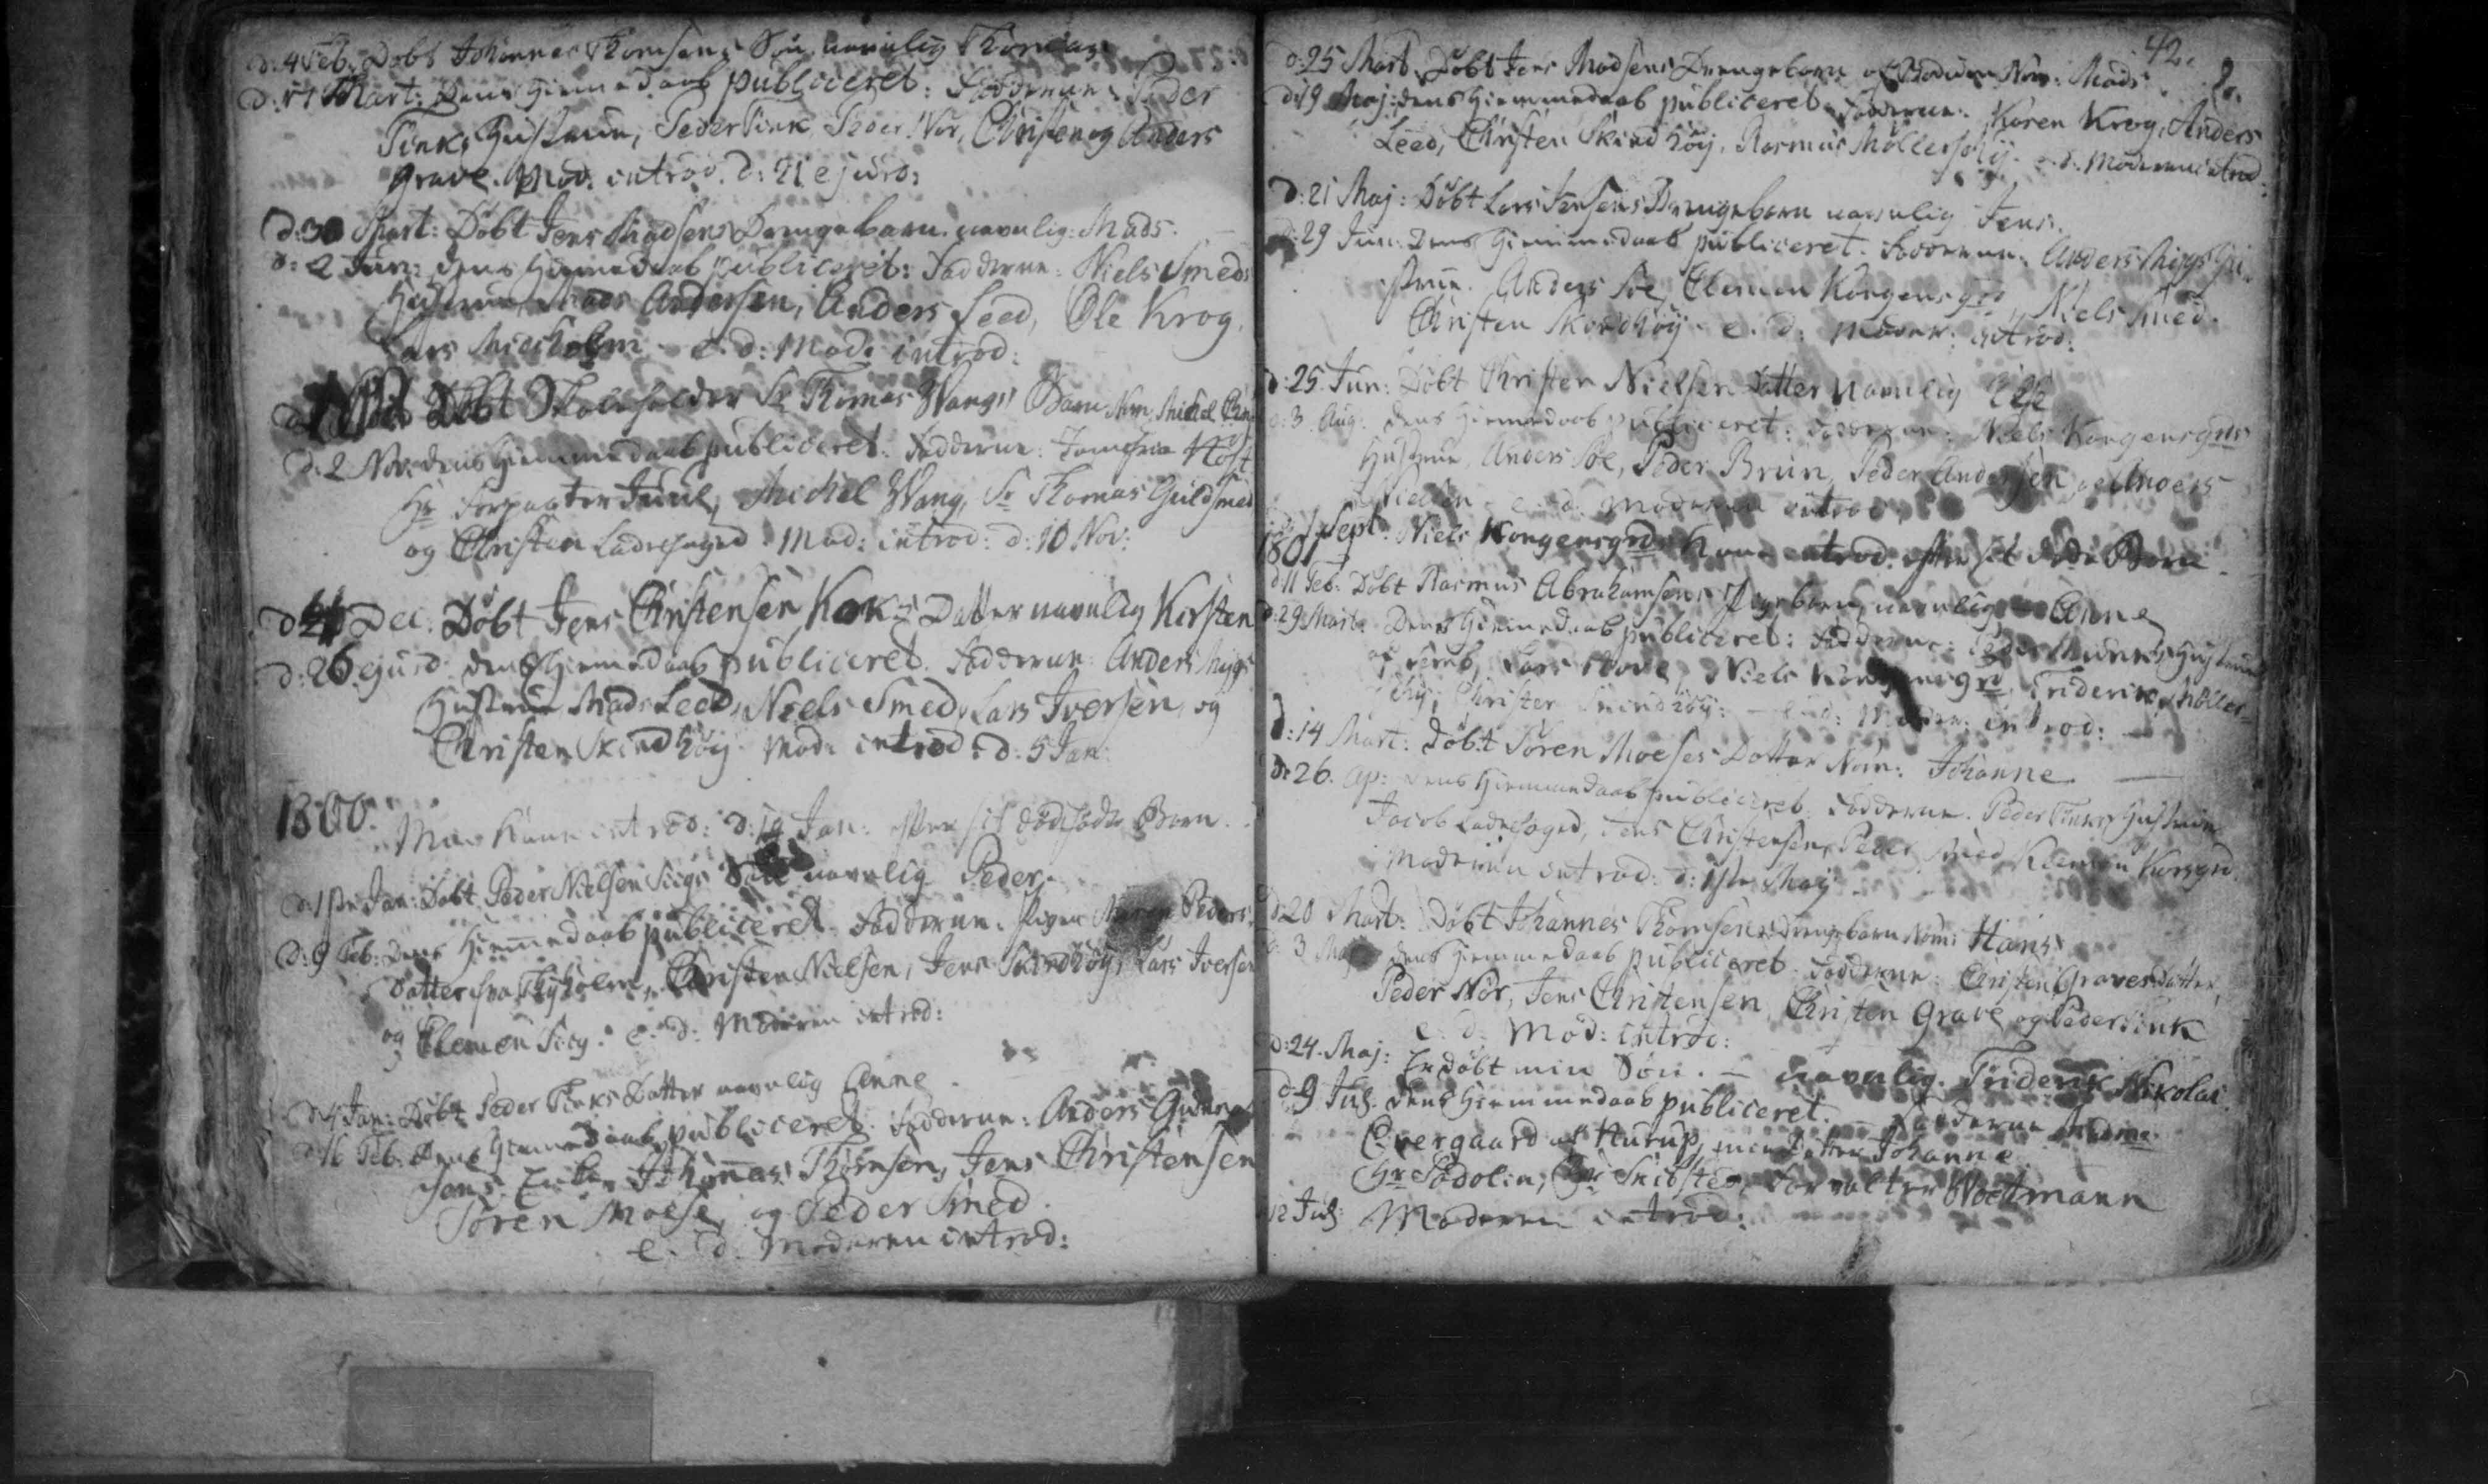 d: 4 Feb. Døbt Johannes Thomsens Søn navnlig Thomas
d: 17 Mart: Dens Hiemmedaab publiceret: Fadderne: Peder
Finks Hustrue, Peder Fink, Peder Nør, Christen og Anders
Grave. Mod: introd. d: 21 ejusd:
d: 30 Mart: Døbt Jens Madsens Drengebarn navnlig: Mads.
d: 2 Jun: dens Hiemmedaab publiceret: Fadderne: Niels Smeds
Hustrue, Mads Andersen, Anders Leed, Ole Krog,
Lars Midholm e. d: Mod: introd:
Døbt Skoleholder Sr Thomas Wangs Barn Nom. Michel
d: 2 Nov. dens Hiemmedaab publiceret. Fadderne: Jomfrue Høst
Hr Forpagter Juul, Michel Wang, Sr Thomas Guldsmed
og Christen Ladefoged. Mod: introd: d: 10 Nov:
d 21 Dec. Døbt Jens Christensen Koks Datter navnlig Kirsten
d: 26 ejusd. dens Hiemmedaab publiceret. Fadderne: Anders
Hustrue Mads Leed, Niels Smed, Lars Iversen, og
Christen Skindhöij. Mod: introd: d: 5 Jan:
1800. Kone introd: d: 19 Jan: efter sit dødfødte Barn.
d: 1ste Jan: Døbt Peder Nielsen Siigs Søn navnlig Peder.
d: 9 Feb: Dens Hiemmedaab publiceret. Fadderne. Pigen Maren Peders
datter fra Thyholm, Christen Nielsen, Jens Skindhöij, Lars Iversen
og Clemen Siig. e. d. Moderen introd:
d: 4 Jan: Døbt Peder Finks Datter navnlig Anne
d: 16 Feb. Dens Hiemmedaab publiceret. Fadderne: Anders
Johannes Thomsen, Jens Christensen
Søren Moese, og Peder Smed.
e. d. Moderen introd:
42.
d: 25 Mart. Døbt Jens Madsens Drengebarn Nom: Mads.
d: 19 Maj: dens Hiemmedaab publiceret. Fadderne: Karen Krog, Anders
Leed, Christen Skindhöij, Rasmus Møllers e. d. Moderen introd:
d: 21 Maj: Døbt Lars Jensens Drengebarn navnlig Jens.
d: 29 Jun: Dens Hiemmedaab publiceret. Fadderne: Anders Hu
strue. Anders Soe, Clemen Kongensgrd, Niels Smed.
Christen Skindhöij e. d: Moder: introd:
d: 25 Jun: Døbt Christen Nielsen Datter navnlig Else
d: 3. Aug. dens Hiemmedaab publiceret: Fadderne: Niels Kongensgrds
Hustrue, Anders Soe, Peder Brun, Peder Andersen og Anders
Nielsen e. d. Moderen introd.
d: 1 Sept. Niels Kongensgrds Kone introd. efter sit døde Barn.
1801
d 11 Feb: Døbt Rasmus Abrahamsens Pigebarn navnlig Anne
d: 29 Mart. Dens Hiemmedaab publiceret: Fadderne: Peder Munks Hustrue
Lars Niels Kongensgrd, Friderik Møller
Christen Skindhöij: e. d: Moder: introd:
d: 14 Mart: Døbt Søren Moeses Datter Nom: Johanne
d: 26. Ap: dens Hiemmedaab publiceret. Fadderne. Peder Finks Hustrue
Jacob Ladefoged, Jens Christensen, Peder Smed, Klemen
Moderen introd: d: 1ste Maj
d: 20 Mart: Døbt Johannes Thomsens Drengebarn Nom: Hans
d. 3 Maj dens Hiemmedaab publiceret. Fadderne: Christen Graves datter,
Peder Nør, Jens Christensen, Christen Grave og Peder Fink
e. d: Mod: introd:
d: 24. Maj: Er døbt min Søn. – navnlig. Friderik Nikolai.
d: 9 Jul. dens Hiemmedaab publiceret. – Fadderne Madme
Overgaard af Hurup, min Datter Johanne.
Hr Fadolin, Hr Skibsted, Forvalter Woetmann
12 Jul: Moderen introd: